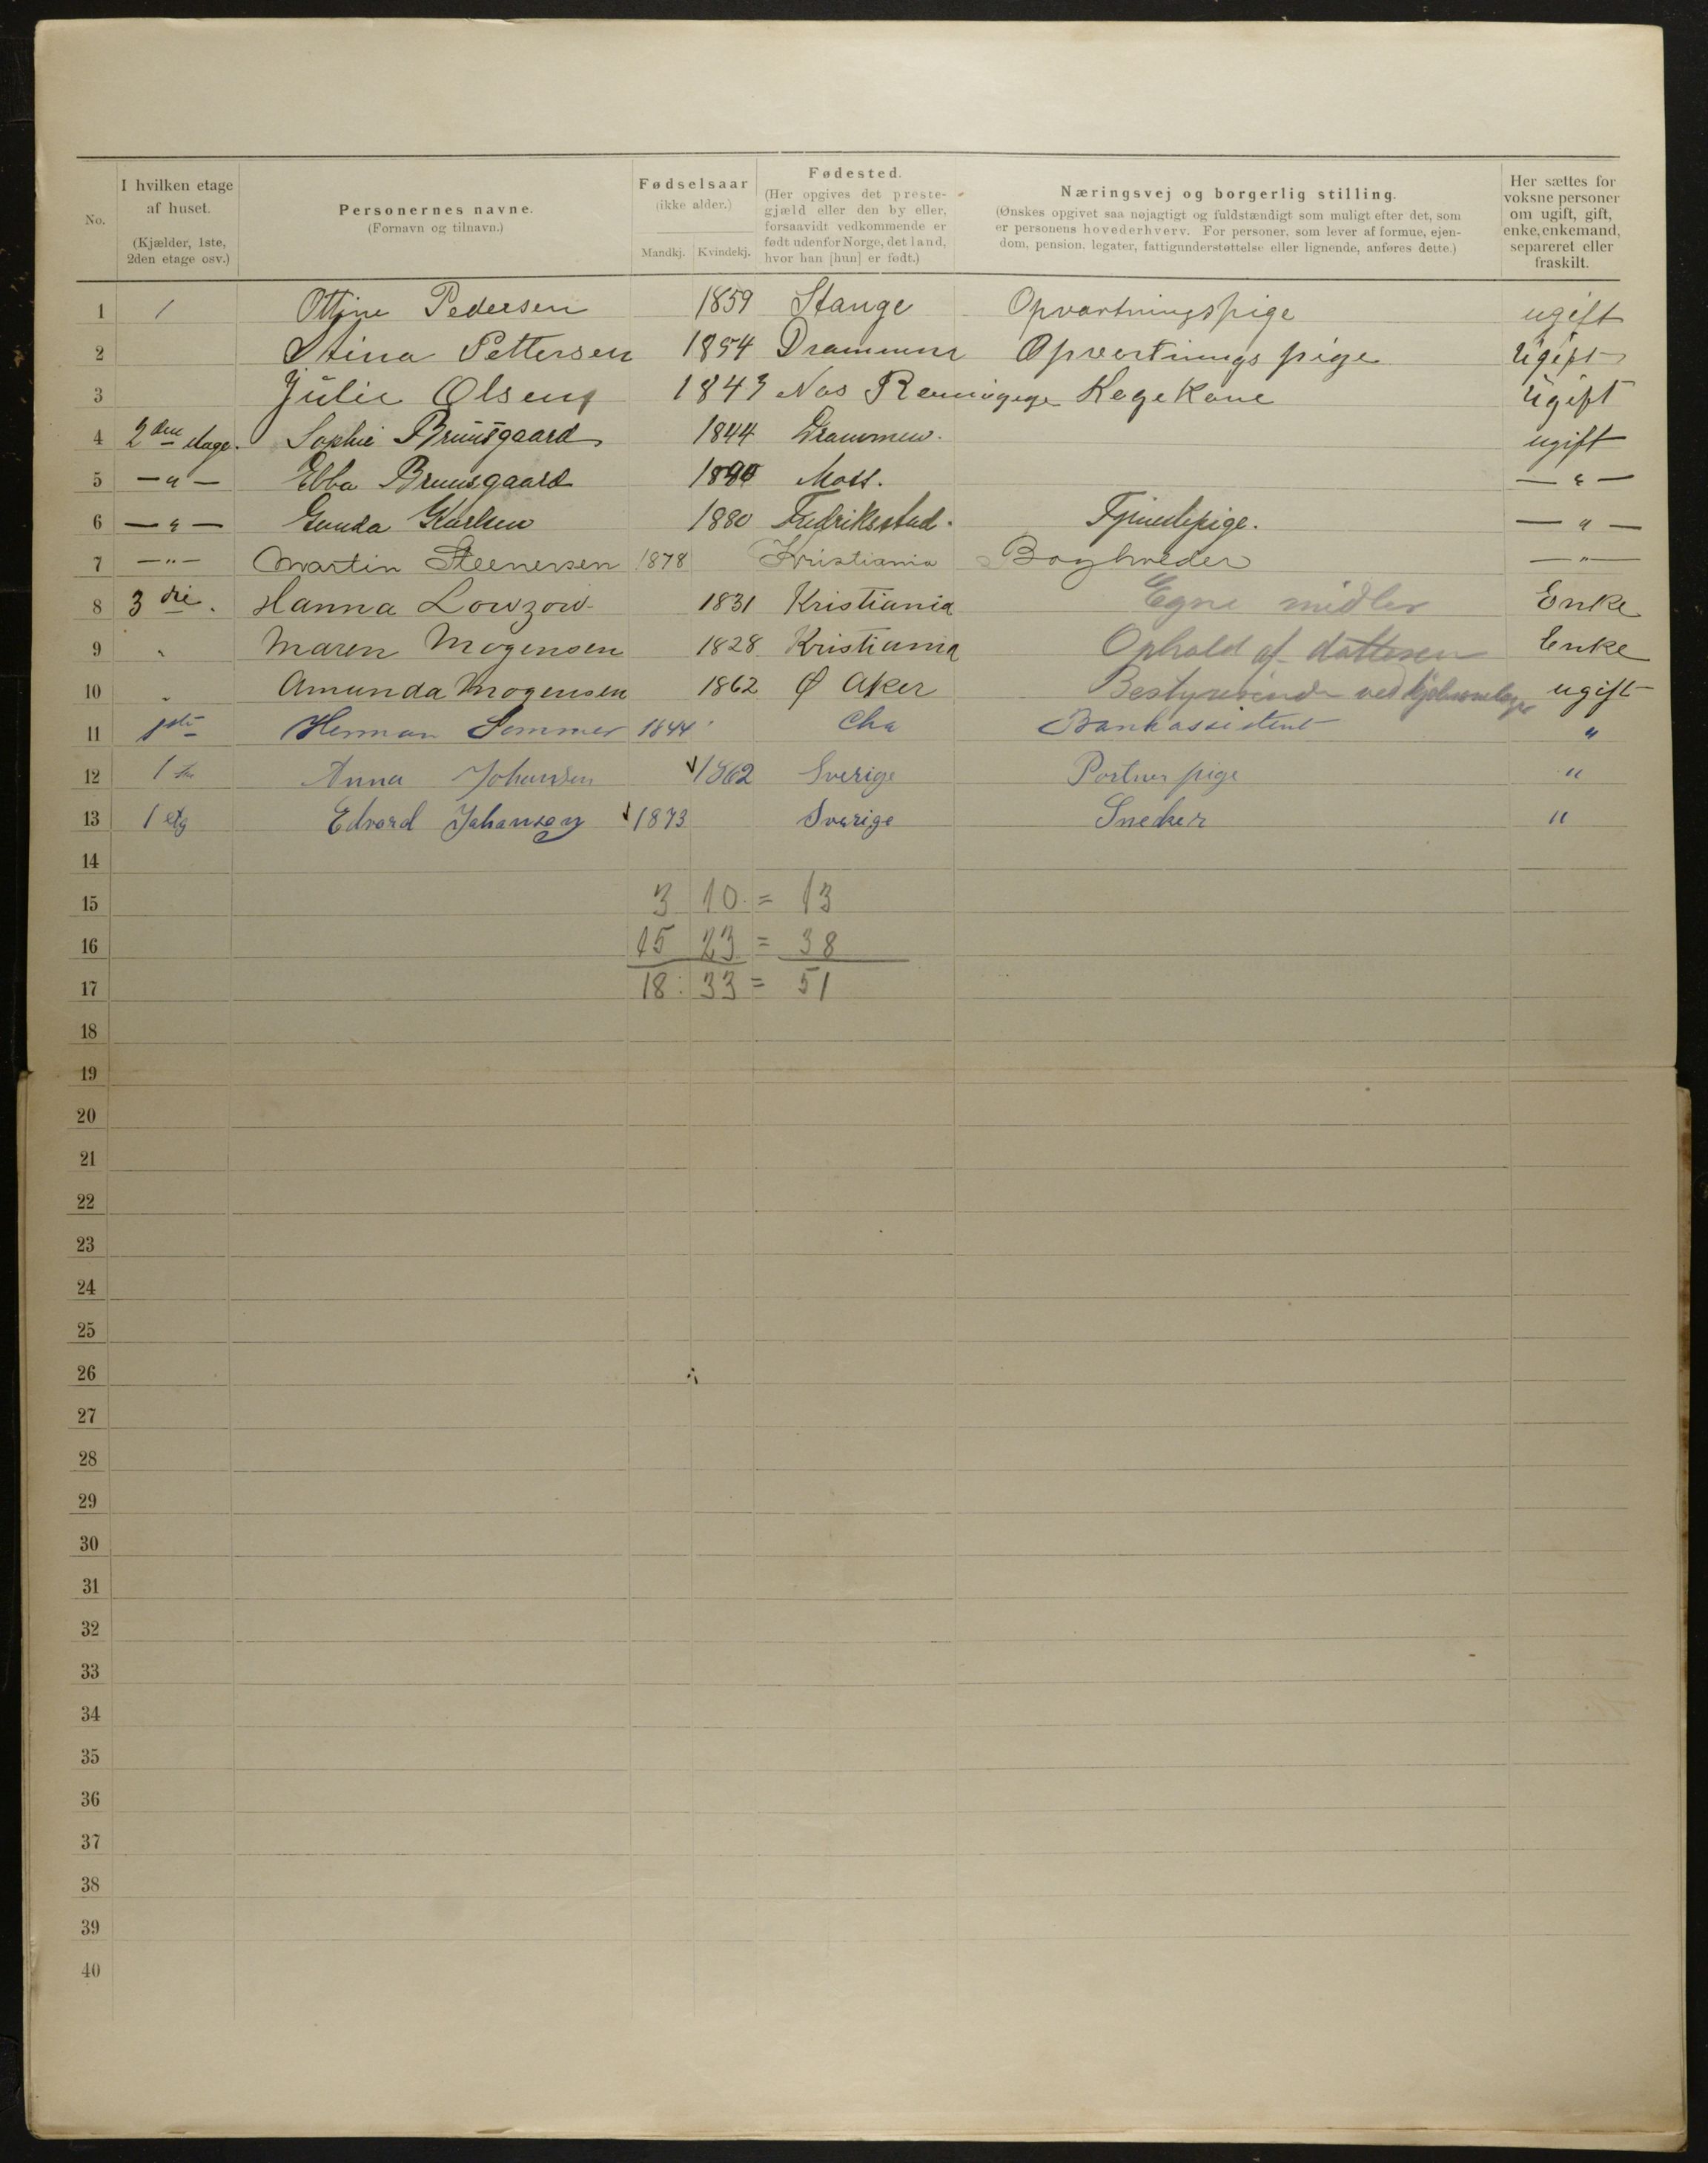 No.
I hvilken etage af huset.
(Kjælder, 1ste, 2den etage osv.)
Personernes navne.
(Fornavn og tilnavn.)
Fødselsaar
(ikke alder.)
Mandkj. Kvindekj.
Fødested.
(Her opgives det prestegjæld eller den by eller, forsaavidt vedkommende er født udenfor Norge, det land, hvor han [hun] er født.)
Næringsvej og borgerlig stilling.
(Ønskes opgivet saa nøjagtigt og fuldstændigt som muligt efter det, som er personens hovederhverv. For personer, som lever af formue, ejendom, pension, legater, fattigunderstøttelse eller lignende, anføres dette.)
Her sættes for voksne personer om ugift, gift, enke, enkemand, separeret eller fraskilt.
1 1 Ottine Pedersen 1859 Stange Opvartningspige ugift
2 Stina Pettersen 1854 Drammen Opvartnings pige Ugift
3 Julie Olsen 1843 Nos Kogekone Ugift
4 2den etage. Sophie Bruusgaard 1844 Drammen. ugift
5 — " — Ebba Bruusgaard 1890 Moss. — " —
6 — " — Gunda Karlsen 1880 Fredriksstad. Tjenestepige. — " —
7 — " — Martin Steenersen 1878 Kristiania Boghveder — " —
8 3die. Hanna Lowzow 1831 Kristiania Egne midler Enke
9 " Maren Mogensen 1828 Kristiania Ophold af datteren Enke
10 " Amunda Mogensen 1862 Ø Aker Bestyrerinde ved ugift
11 1ste Herman Sommer 1844 Cha Bankassistent "
12 1ste Anna Johansen 1862 Sverige Portner pige "
13 1 etg Edvard Johansen 1873 Sverige Sneker "
14
15 3 10 = 13
16 15 23 = 38
17 18 : 33 = 51
18
19
20
21
22
23
24
25
26
27
28
29
30
31
32
33
34
35
36
37
38
39
40